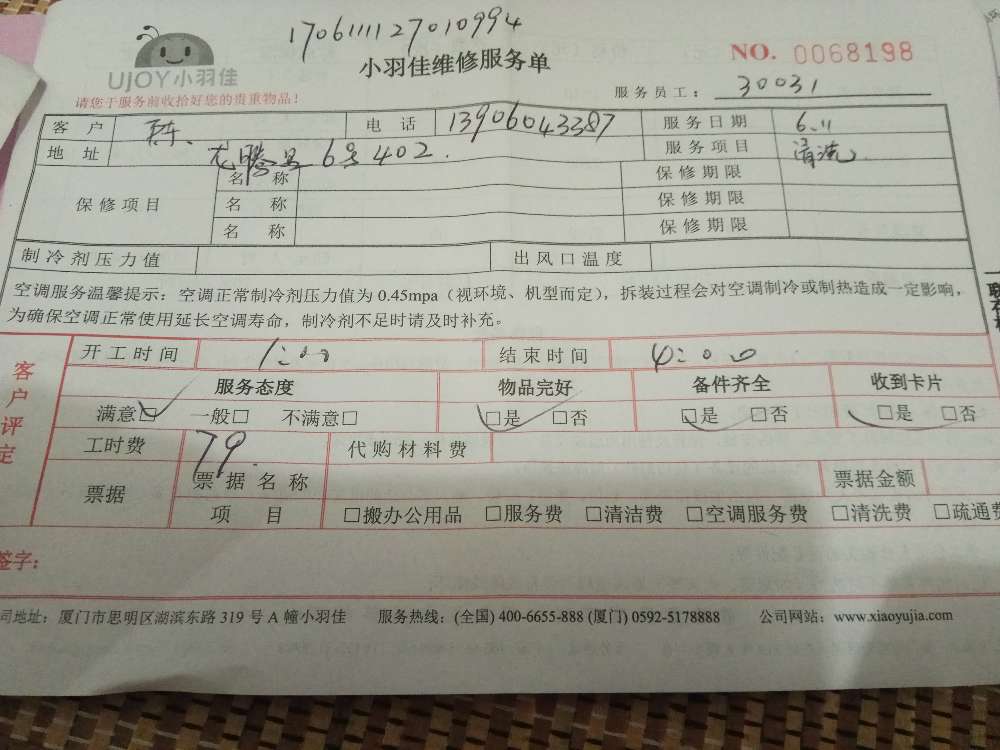 170611127010994
UJOY小羽佳
小羽佳维修服务单
NO. 0068198
请您于服务前收拾好您的贵重物品！
服务员工： 30031
客户 陈、 电话 13906043387 服务日期 6.11
地址 龙腾 6号402. 服务项目 清洗
保修项目 名称 保修期限
名称 保修期限
名称 保修期限
制冷剂压力值 出风口温度
空调服务温馨提示：空调正常制冷剂压力值为 0.45mpa（视环境、机型而定），拆装过程会对空调制冷或制热造成一定影响，
为确保空调正常使用延长空调寿命，制冷剂不足时请及时补充。
客户评定
开工时间 1:00 结束时间 4:00
服务态度 物品完好 备件齐全 收到卡片
满意□ 一般□ 不满意□ □是 □否 □是 □否 □是 □否
工时费 79. 代购材料费
票据 票据名称 票据金额
项目 □搬办公用品 □服务费 □清洁费 □空调服务费 □清洗费 □疏通费
签字：
司地址：厦门市思明区湖滨东路 319 号 A 幢小羽佳 服务热线：(全国) 400-6655-888 (厦门) 0592-5178888 公司网站：www.xiaoyujia.com